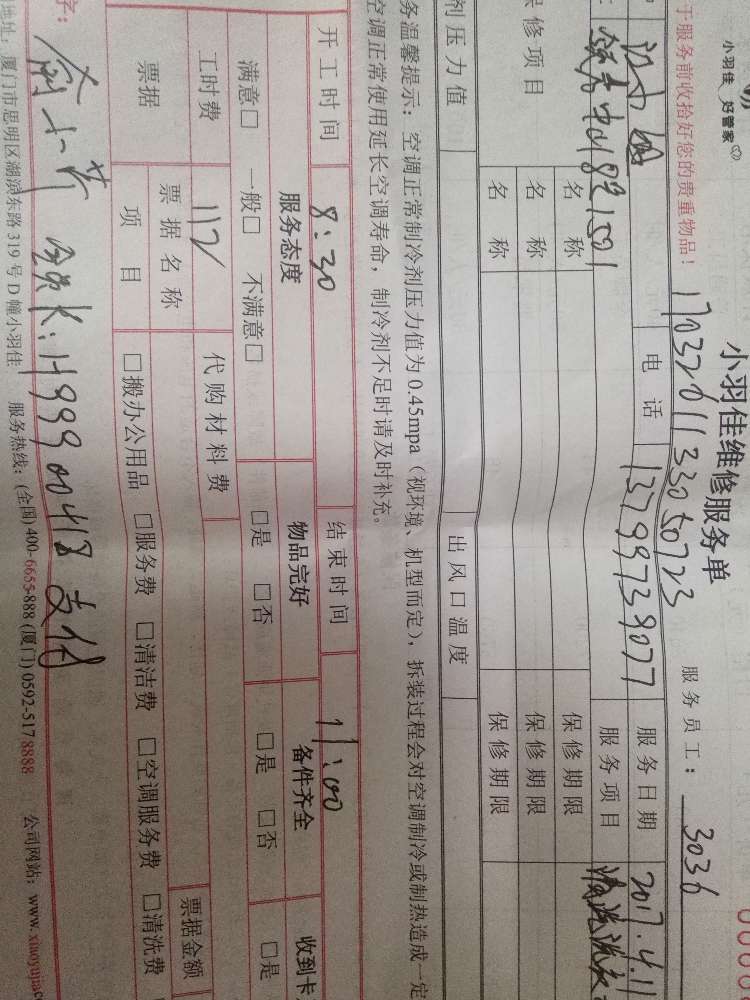 小羽佳 好管家
小羽佳维修服务单
服务员工： 3036
于服务前收拾好您的贵重物品！ 17032611330 50723
电话 13799739077 服务日期 2017.4.11
服务项目
保修项目 名称 保修期限
名称 保修期限
名称 保修期限
剂压力值 出风口温度
务温馨提示：空调正常制冷剂压力值为0.45mpa（视环境、机型而定），拆装过程会对空调制冷或制热造成一定
空调正常使用延长空调寿命，制冷剂不足时请及时补充。
开工时间 8:30 结束时间 11:00
服务态度 物品完好 备件齐全 收到卡
满意□ 一般□ 不满意□ □是 □否 □是 □否 □是
工时费 112 代购材料费
票据 票据名称 票据金额
项目 □搬办公用品 □服务费 □清洁费 □空调服务费 □清洗费
字： 会员卡：H99900418 支付
地址：厦门市思明区湖滨东路319号D幢小羽佳 服务热线：(全国) 400-6655-888 (厦门) 0592-517 8888 公司网站：www.xiaoyujia.c